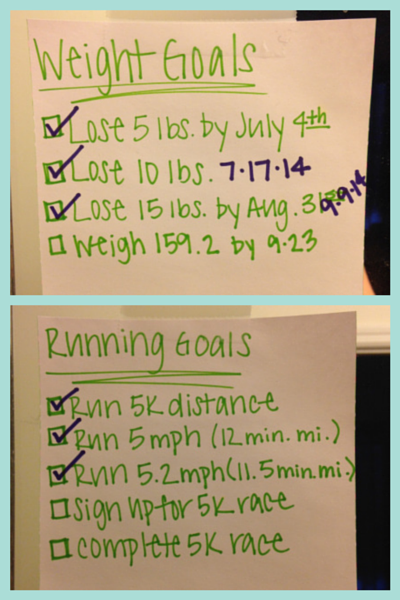 Weight Goals
Lose 5 lbs. by July 4th
Lose 10 lbs. 7.17.14
Lose 15 lbs. by Aug. 31st 9.9.14
Weigh 159.2 by 9.23
Running Goals
Run 5K distance
Run 5mph (12 min. mi.)
Run 5.2mph (11.5 min. mi.)
Sign up for 5K race
complete 5K race